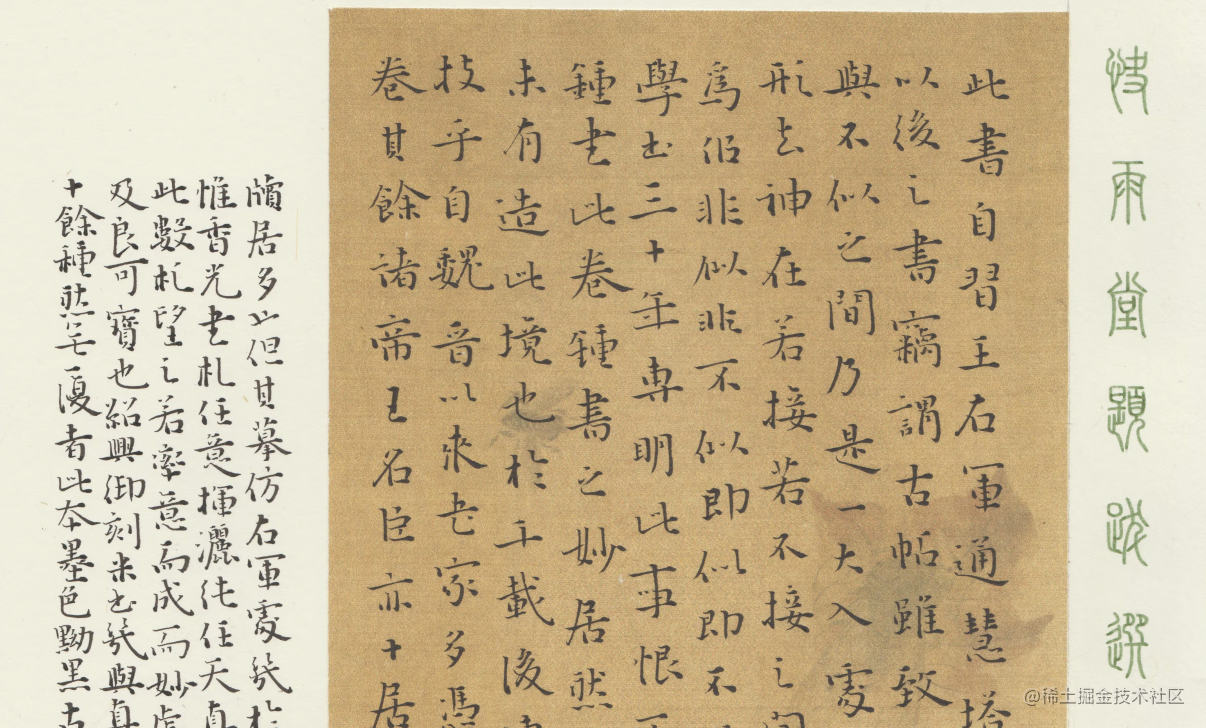 快雨堂題跋選
此書自習王右軍通慧塔
以後之書竊謂古帖雖致
與不似之間乃是一大入處
形去神在若接若不接之間
為佀非似非不似即似即不
學書三十年専明此事恨
鍾書此卷鍾書之妙居然
未有造此境也於千載後
技乎自魏晉以來書家多馮
卷其餘諸帝王名臣亦十居
牘居多以但其摹仿右軍處幾於
惟香光書札任意揮灑純任天真
此數札望之若率意而成而妙處
及良可寶也紹興御刻米書幾與真
十餘種然無優者此本墨色黝黑古
@稀土掘金技术社区